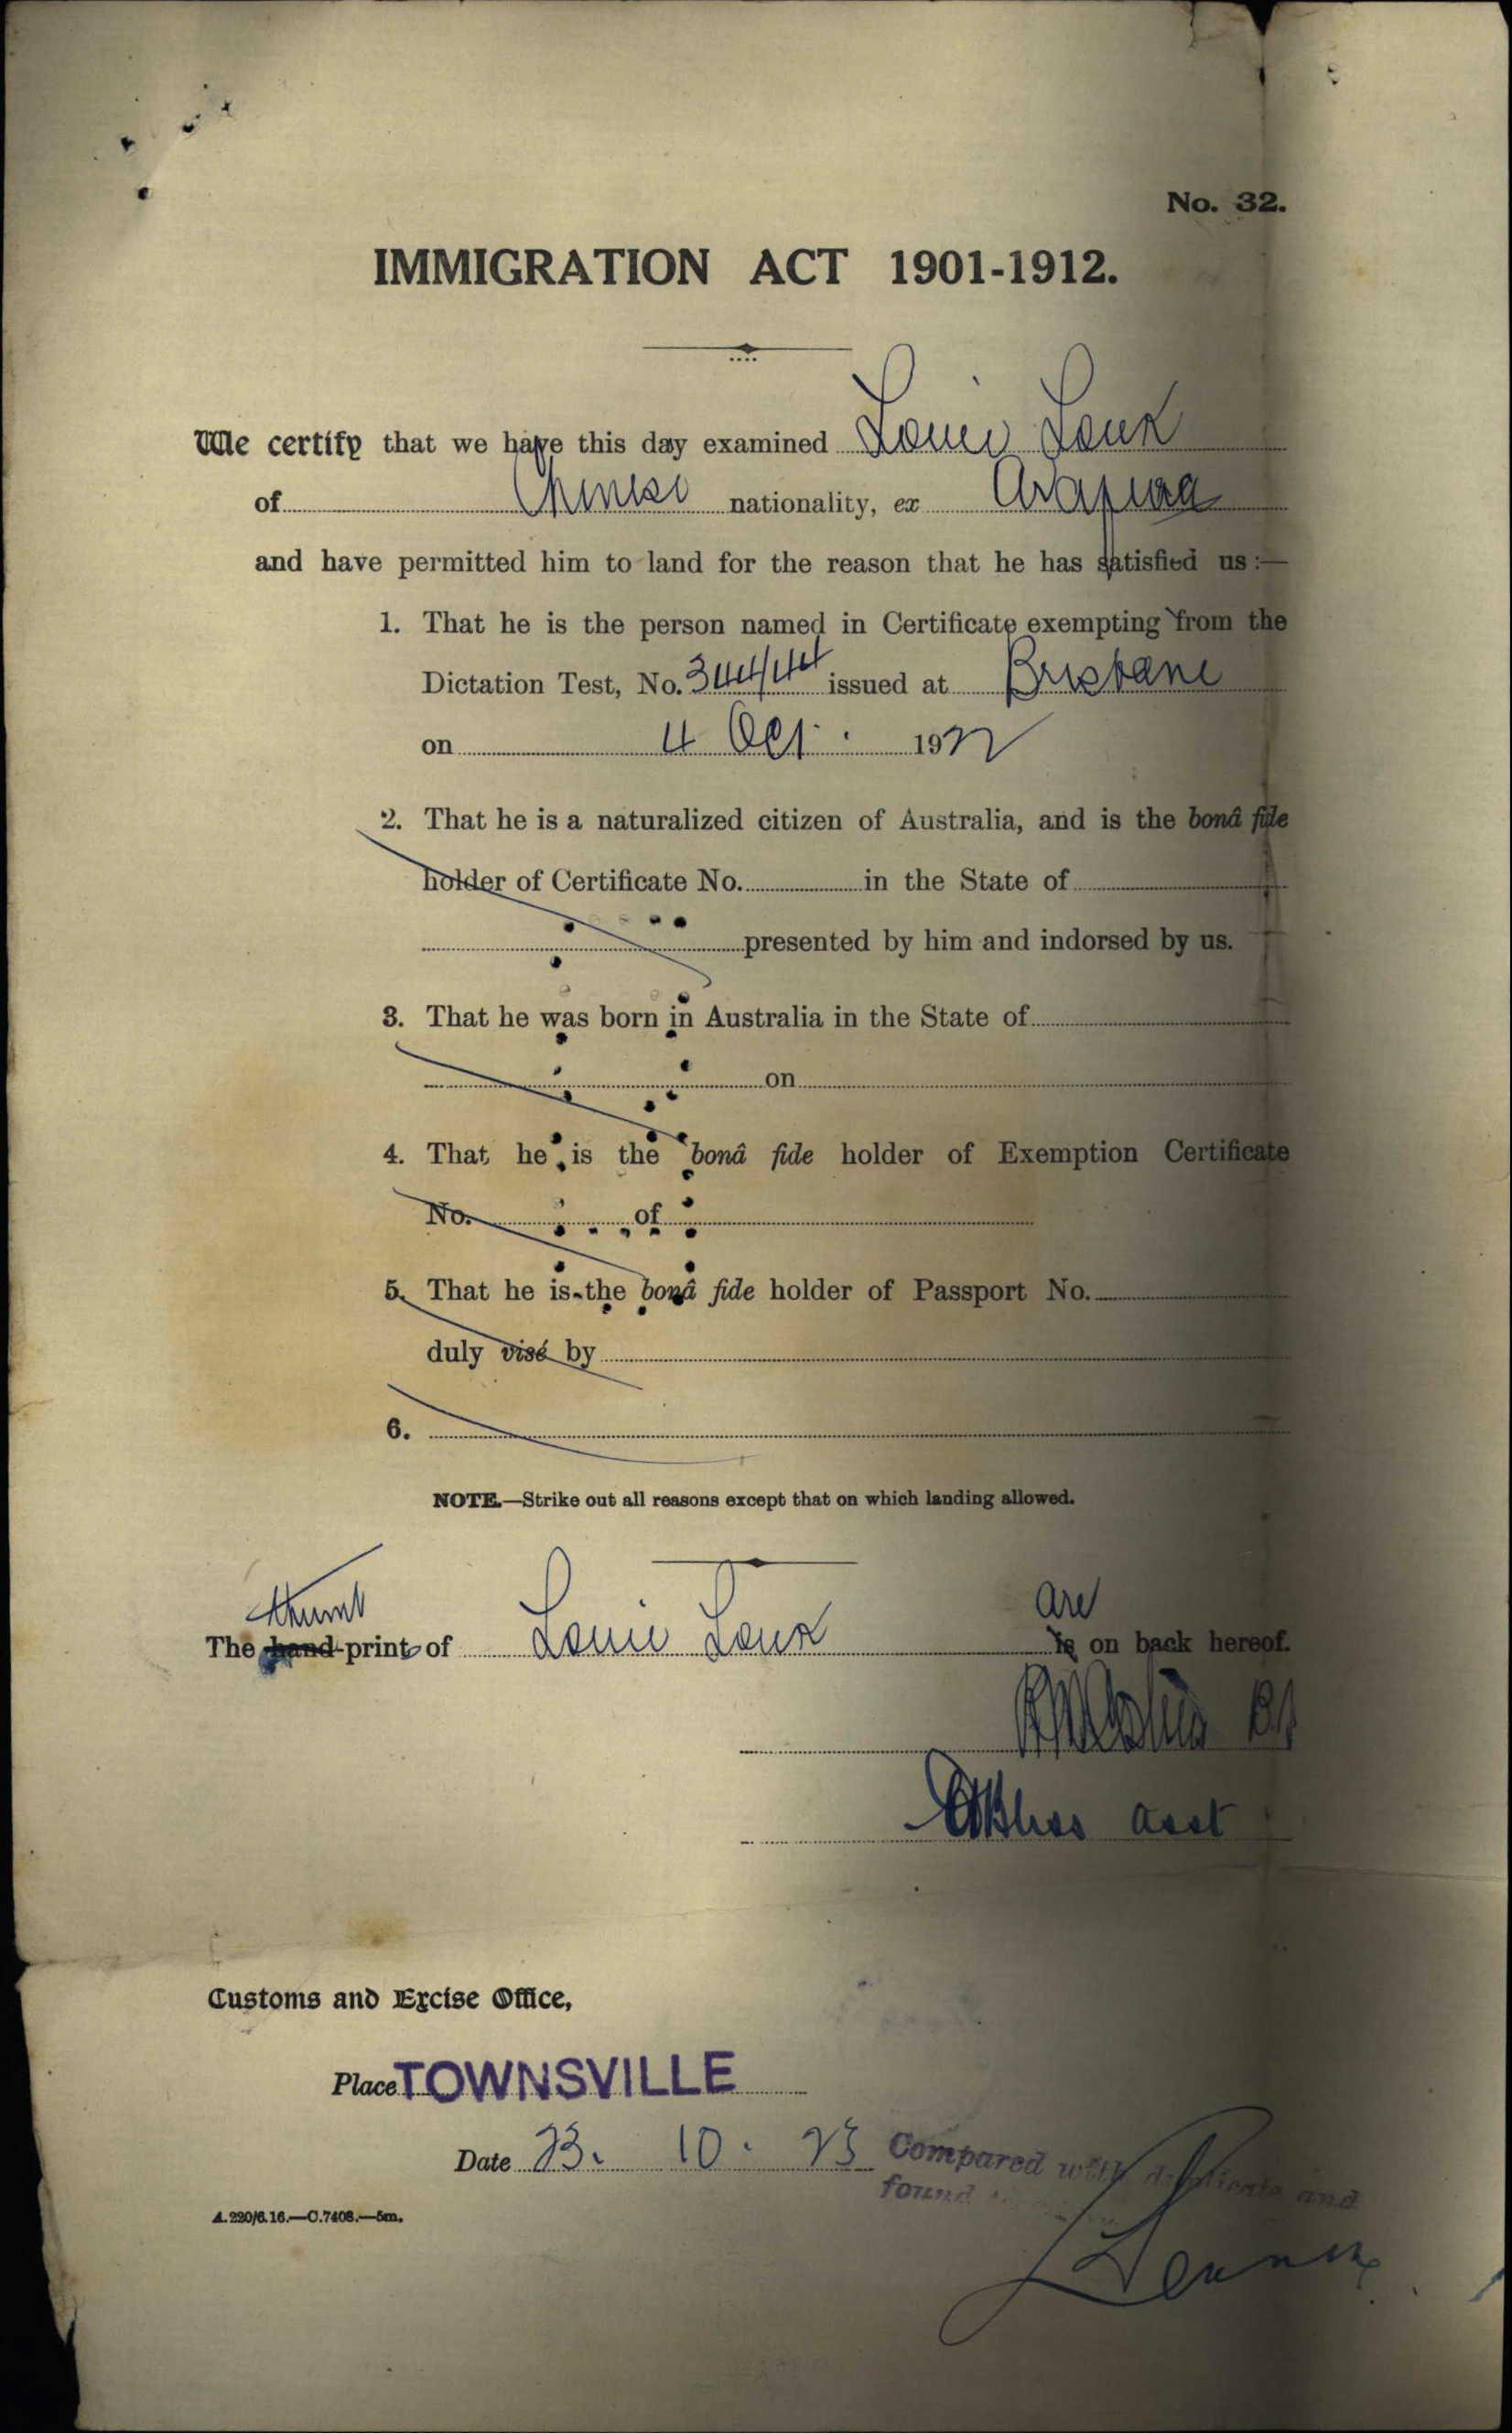 No. 32.
IMMIGRATION ACT 1901-1912.
We certify that we have this day examined Louie Louk
of Chinese nationality, ex Arafura
and have permitted him to land for the reason that he has satisfied us :—
1. That he is the person named in Certificate exempting from the
Dictation Test, No. 344/44 issued at Brisbane
on 4 Oct. 1922
2. That he is a naturalized citizen of Australia, and is the bonâ fide
holder of Certificate No. in the State of
presented by him and indorsed by us.
3. That he was born in Australia in the State of
on
4. That he is the bonâ fide holder of Exemption Certificate
No. of
5. That he is the bonâ fide holder of Passport No.
duly visé by
6.
NOTE.—Strike out all reasons except that on which landing allowed.
thumb are
The hand-prints of Louie Louk is on back hereof.
asst
Customs and Excise Office,
Place TOWNSVILLE
Date 23. 10. 23 Compared with duplicate and
found
A.220/6.16.—C.7408.—5m.